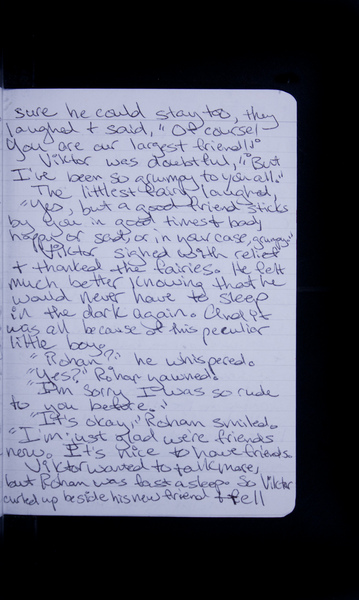 sure he could stay too, they
laughed + said, "Of course!
You are our largest friend!"
Viktor was doubtful, "But
I've been so grumpy to you all."
The littlest fairy laughed,
"Yes, but a good friend sticks
by you in good times + bad,
happy or sad, or in your case, grumpy."
Viktor sighed with relief
+ thanked the fairies. He felt
much better knowing that he
would never have to sleep
in the dark again. And it
was all because of this peculiar
little boy.
"Rohan?" he whispered.
"Yes?" Rohan yawned.
"I'm sorry I was so rude
to you before."
"It's okay," Rohan smiled.
"I'm just glad we're friends
now. It's nice to have friends.
Viktor wanted to talk more,
but Rohan was fast asleep. So Viktor
curled up beside his new friend + fell